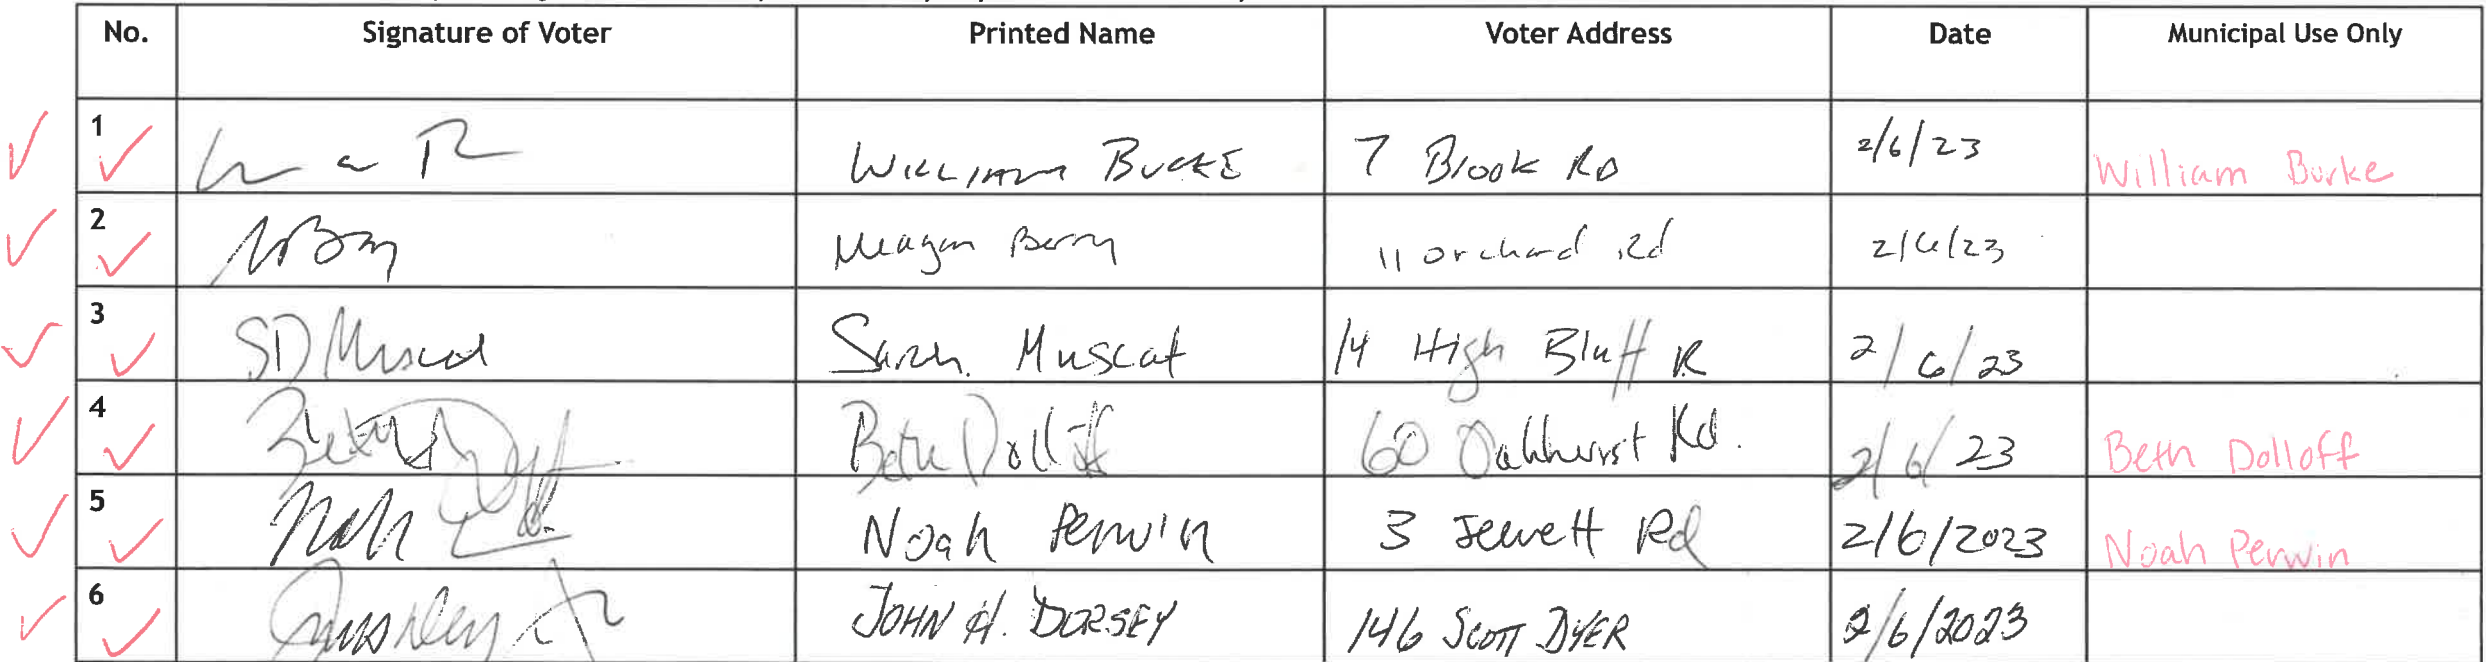 No. Signature of Voter Printed Name Voter Address Date Municipal Use Only
1 WILLIAM BURKE 7 Brook RD 2/6/23 William Burke
2 Meagan Berry 11 orchard Rd 2/6/23
3 SD Muscat Sarah Muscat 14 High Bluff R 2/6/23
4 Beth Dolloff 60 Oakhurst Rd. 2/6/23 Beth Dolloff
5 Noah Perwin 3 Jewett Rd 2/6/2023 Noah Perwin
6 JOHN H. DORSEY 146 SCOTT DYER 2/6/2023